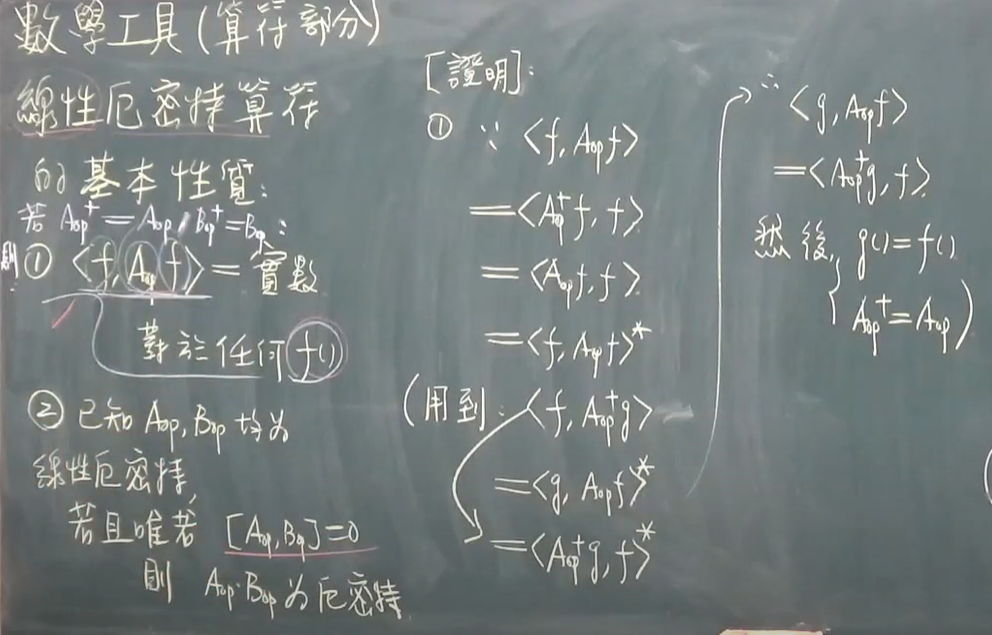 數學工具(算符部分)
線性厄密特算符
的基本性質:
若 Aop⁺=Aop, Bop⁺=Bop:
則 ① <f, Aop f> = 實數
對於任何 f()
② 已知 Aop, Bop 均為
線性厄密特,
若且唯若 [Aop, Bop]=0
則 Aop·Bop 為厄密特
[證明]:
① ∵ <f, Aop f>
=<Aop⁺f, f>
=<Aop f, f>
=<f, Aop f>*
(用到: <f, Aop⁺g>
=<g, Aop f>*
=<Aop⁺g, f>*
∴ <g, Aop f>
=<Aop⁺g, f>
然後, { g()=f()
Aop⁺=Aop )